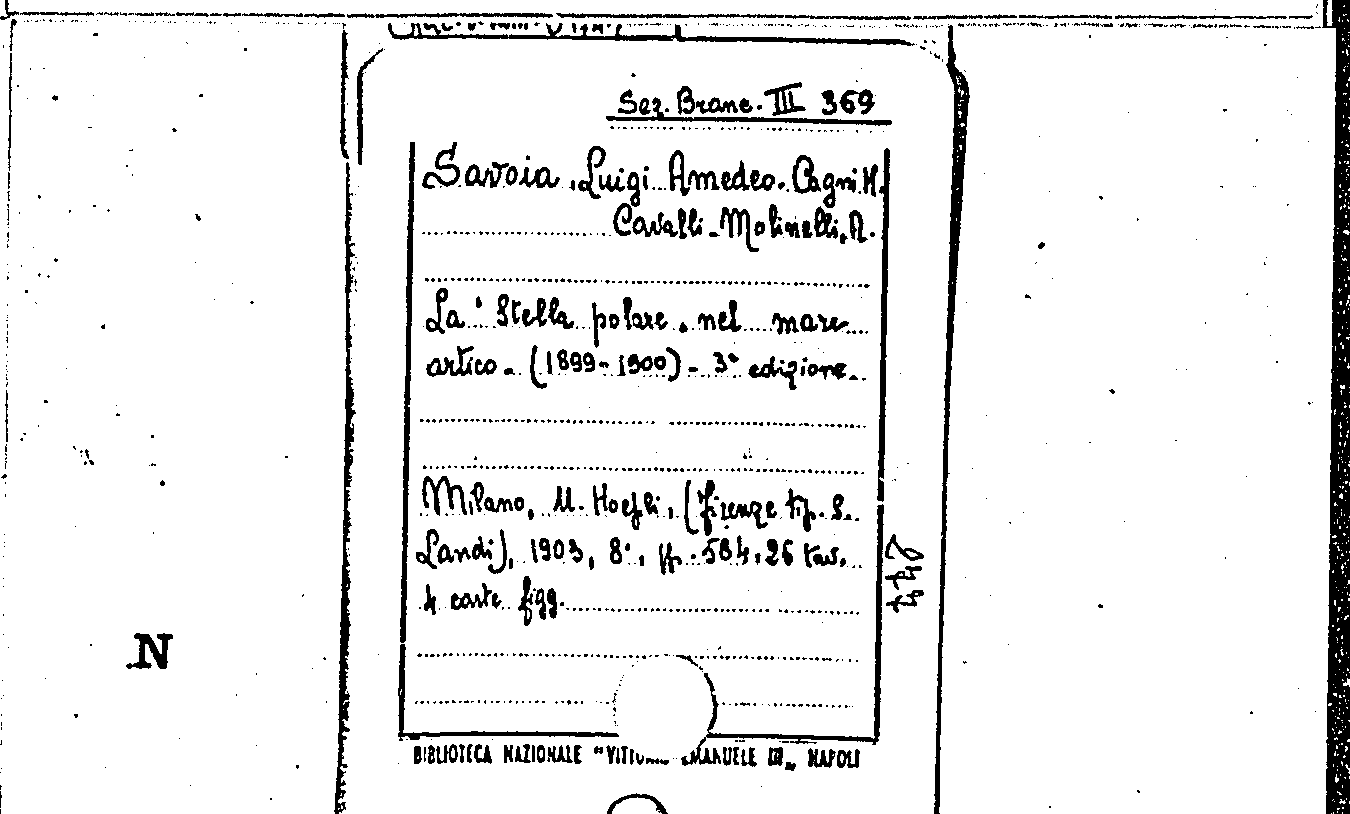 Sez. Branc. III 369
Savoia, Luigi Amedeo. Cagni. M.
Cavalli-Molinelli, A.
La "Stella polare" nel mare
artico - (1899-1900) - 3ª edizione.
Milano, U. Hoepli, (Firenze tip. S.
Landi), 1903, 8°, pp. 584, 26 tav.
4 carte figg.
N
BIBLIOTECA NAZIONALE "VITTORIO EMANUELE III" NAPOLI